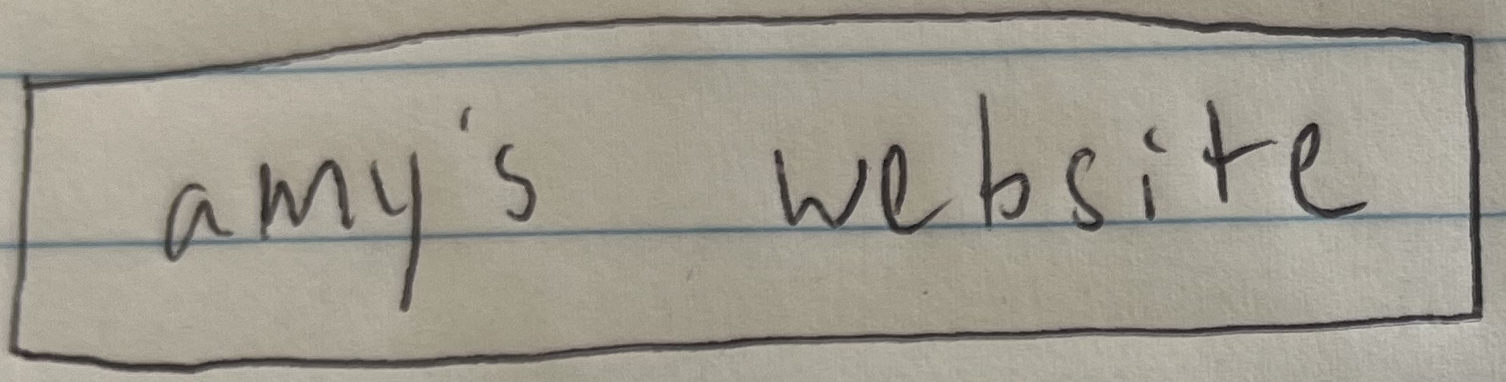 amy's website